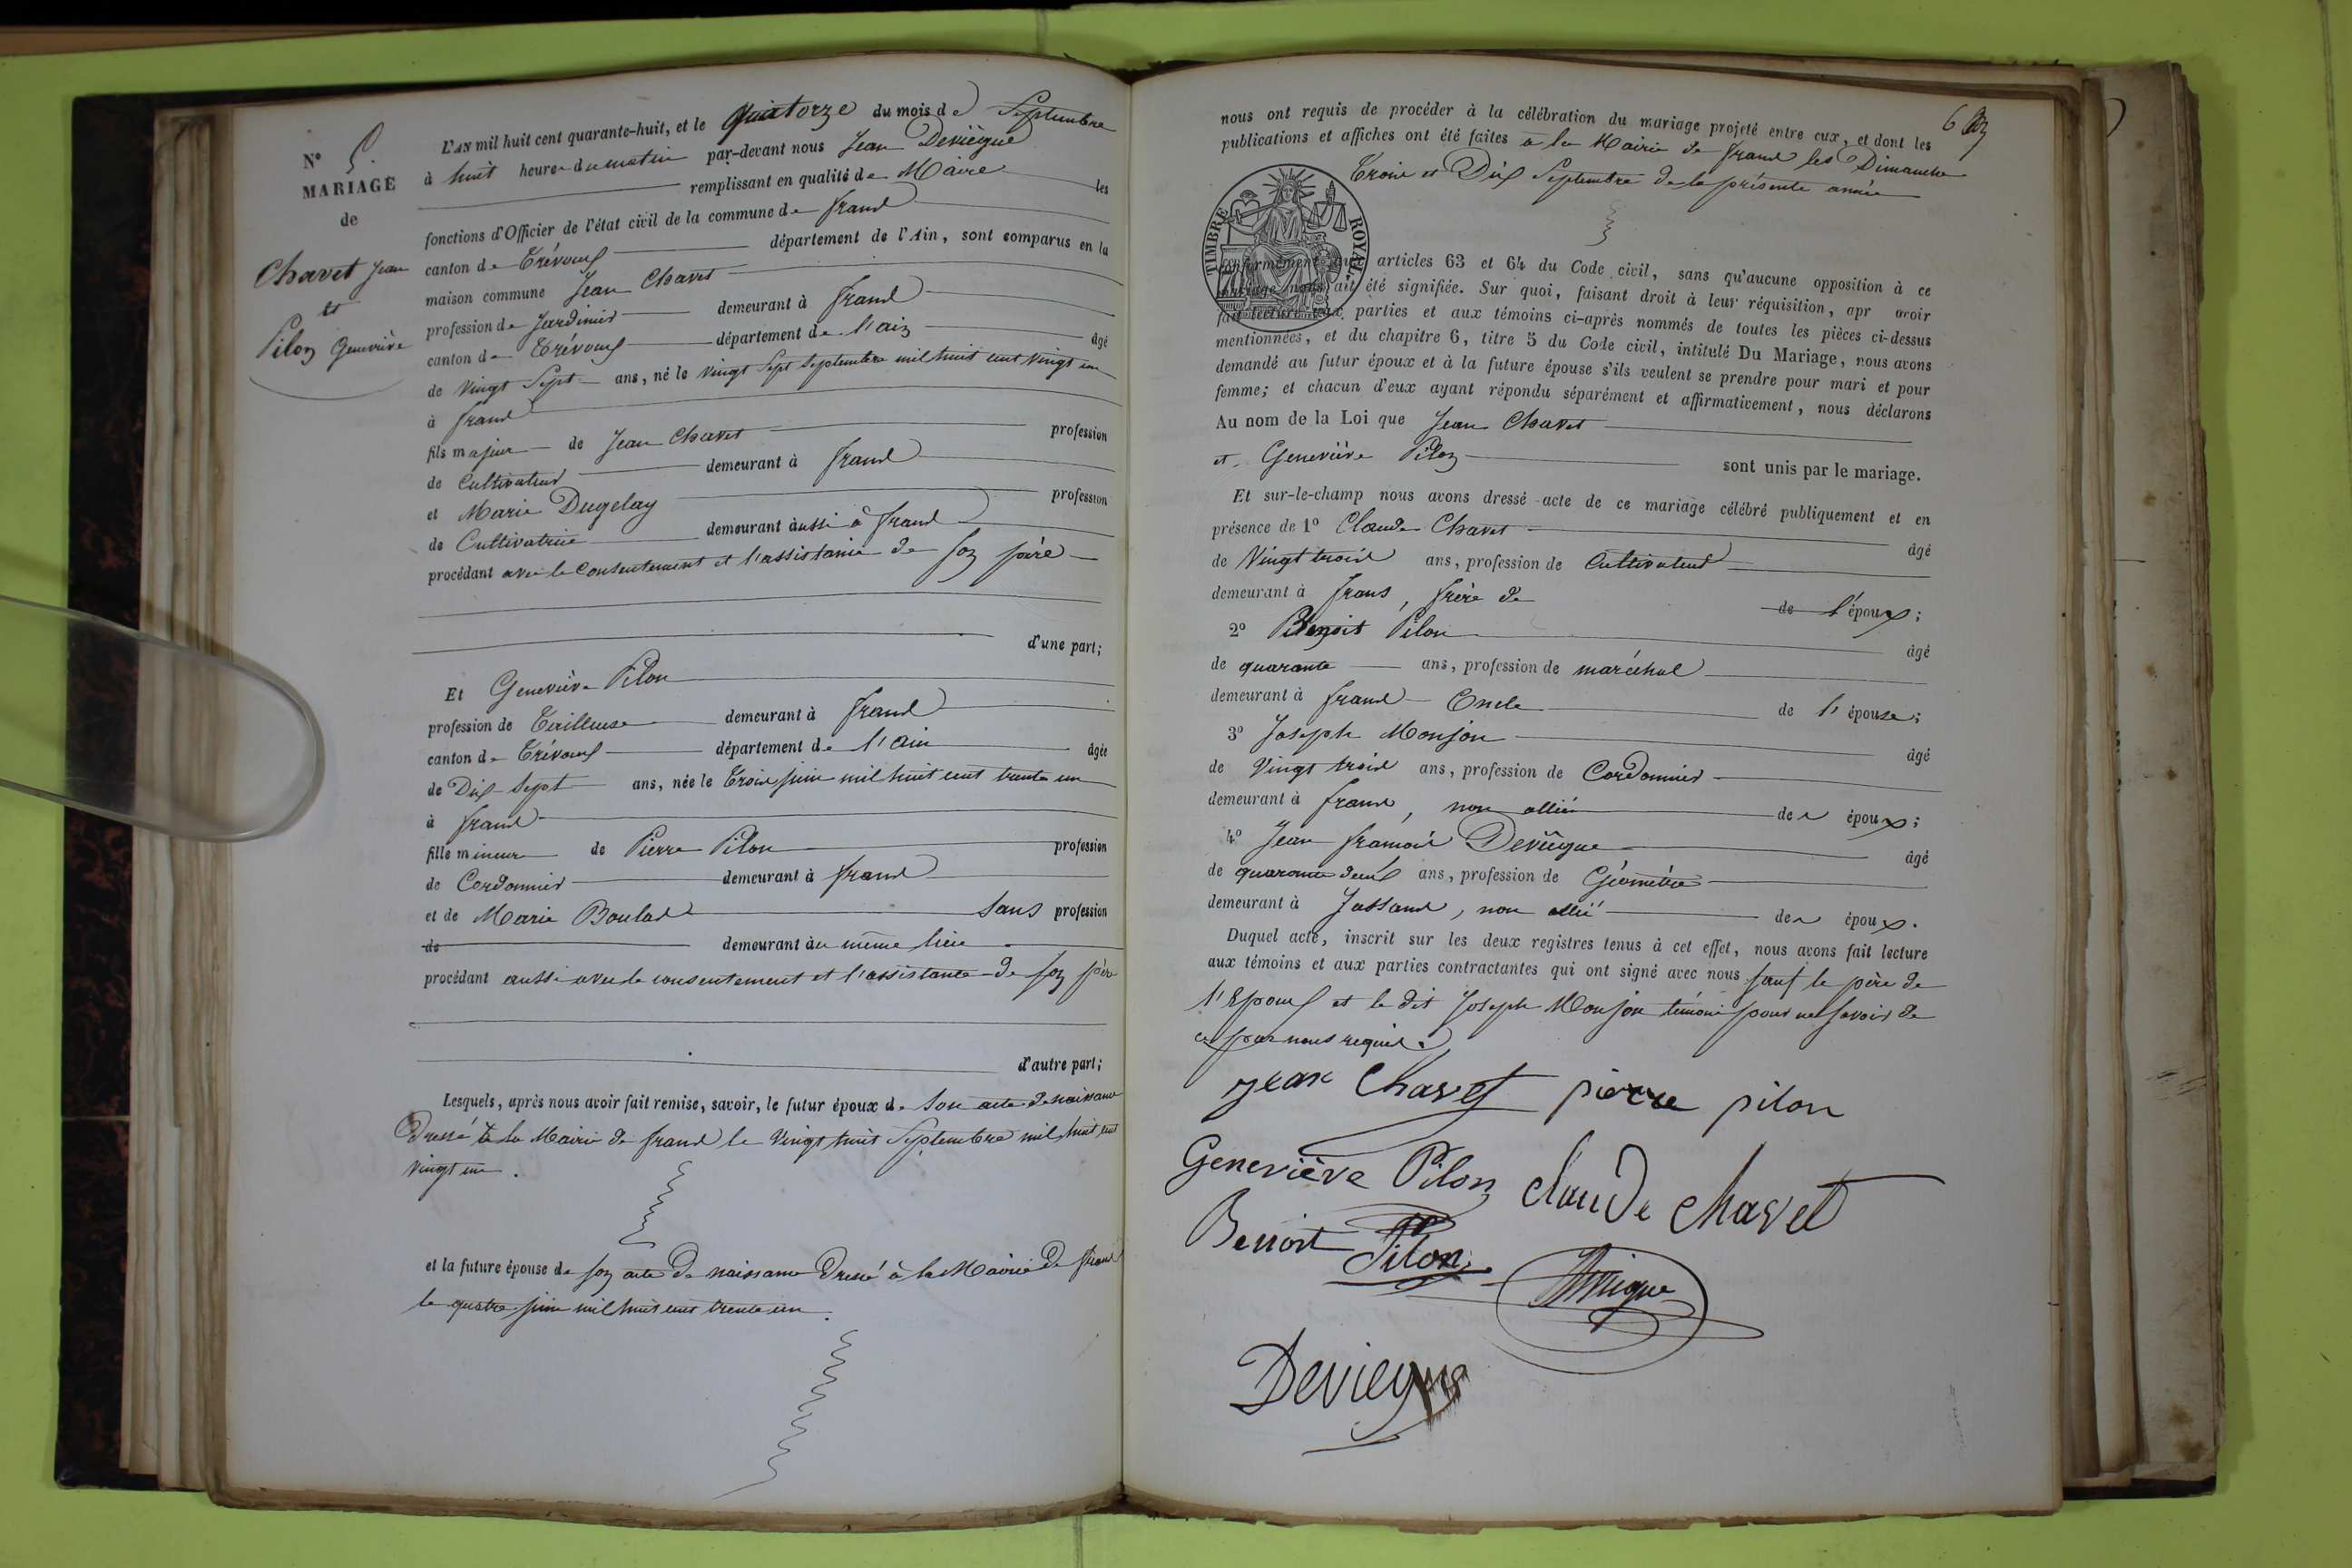 N° 5.
MARIAGE
de
Chavet Jean
et
Pilon Geneviève
L'AN mil huit cent quarante-huit, et le quatorze du mois de Septembre
à huit heures du matin par-devant nous Jean Deviègue
remplissant en qualité de Maire les
fonctions d'Officier de l'état civil de la commune de frans
canton de Trévoux département de l'Ain, sont comparus en la
maison commune Jean Chavet
profession de Jardinier demeurant à frans
canton de Trévoux département de l'ain âgé
de vingt Sept ans, né le vingt Sept Septembre mil huit cent vingt un
à frans
fils majeur de Jean Chavet profession
de Cultivateur demeurant à frans
et Marie Dugelay profession
de Cultivatrice demeurant aussi à frans
procédant avec le consentement et l'assistance de son père
d'une part;
Et Geneviève Pilon
profession de Tailleuse demeurant à frans
canton de Trévoux département de l'ain âgée
de Dix Sept ans, née le Trois juin mil huit cent trente un
à frans
fille mineure de Pierre Pilon profession
de Cordonnier demeurant à frans
et de Marie Boulad sans profession
de demeurant au même lieu
procédant aussi avec le consentement et l'assistance de son père
d'autre part;
Lesquels, après nous avoir fait remise, savoir, le futur époux de son acte de naissance
Dressé à la Mairie de frans le vingt huit Septembre mil huit cent
vingt un.
et la future épouse de son acte de naissance Dressé à la Mairie de frans
le quatre juin mil huit cent trente un.
6
nous ont requis de procéder à la célébration du mariage projeté entre eux, et dont les
publications et affiches ont été faites à la Mairie de frans les Dimanche
Trois et Dix Septembre de la présente année
TIMBRE ROYAL
conformément aux articles 63 et 64 du Code civil, sans qu'aucune opposition à ce
mariage nous ait été signifiée. Sur quoi, faisant droit à leur réquisition, apr avoir
fait lecture aux parties et aux témoins ci-après nommés de toutes les pièces ci-dessus
mentionnées, et du chapitre 6, titre 5 du Code civil, intitulé Du Mariage, nous avons
demandé au futur époux et à la future épouse s'ils veulent se prendre pour mari et pour
femme; et chacun d'eux ayant répondu séparément et affirmativement, nous déclarons
Au nom de la Loi que Jean Chavet
et Geneviève Pilon sont unis par le mariage.
Et sur-le-champ nous avons dressé acte de ce mariage célébré publiquement et en
présence de 1° Claude Chavet âgé
de Vingt trois ans, profession de Cultivateur
demeurant à frans, frère de de l'époux;
2° Benoit Pilon âgé
de quarante ans, profession de maréchal
demeurant à frans Oncle de l'épouse;
3° Joseph Monjon âgé
de Vingt trois ans, profession de Cordonnier
demeurant à frans, non allié des époux;
4° Jean françois Deviègue âgé
de quarante deux ans, profession de Géomètre
demeurant à Jassans, non allié des époux.
Duquel acte, inscrit sur les deux registres tenus à cet effet, nous avons fait lecture
aux témoins et aux parties contractantes qui ont signé avec nous sauf le père de
l'Epoux et le dit Joseph Monjon témoin pour ne savoir de
ce par nous requis.
jean Chavet pierre pilon
Geneviève Pilon claude chavet
Benoit Pilon
Deviegue